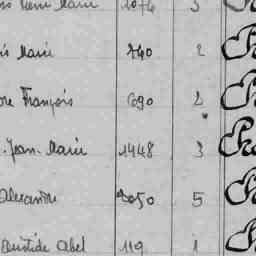 Marie 1074 3
is Marie 740 2
re François 690 2
. Jean. Marie 1448 3
Alexandre 2050 5
Aristide Abel 119 1